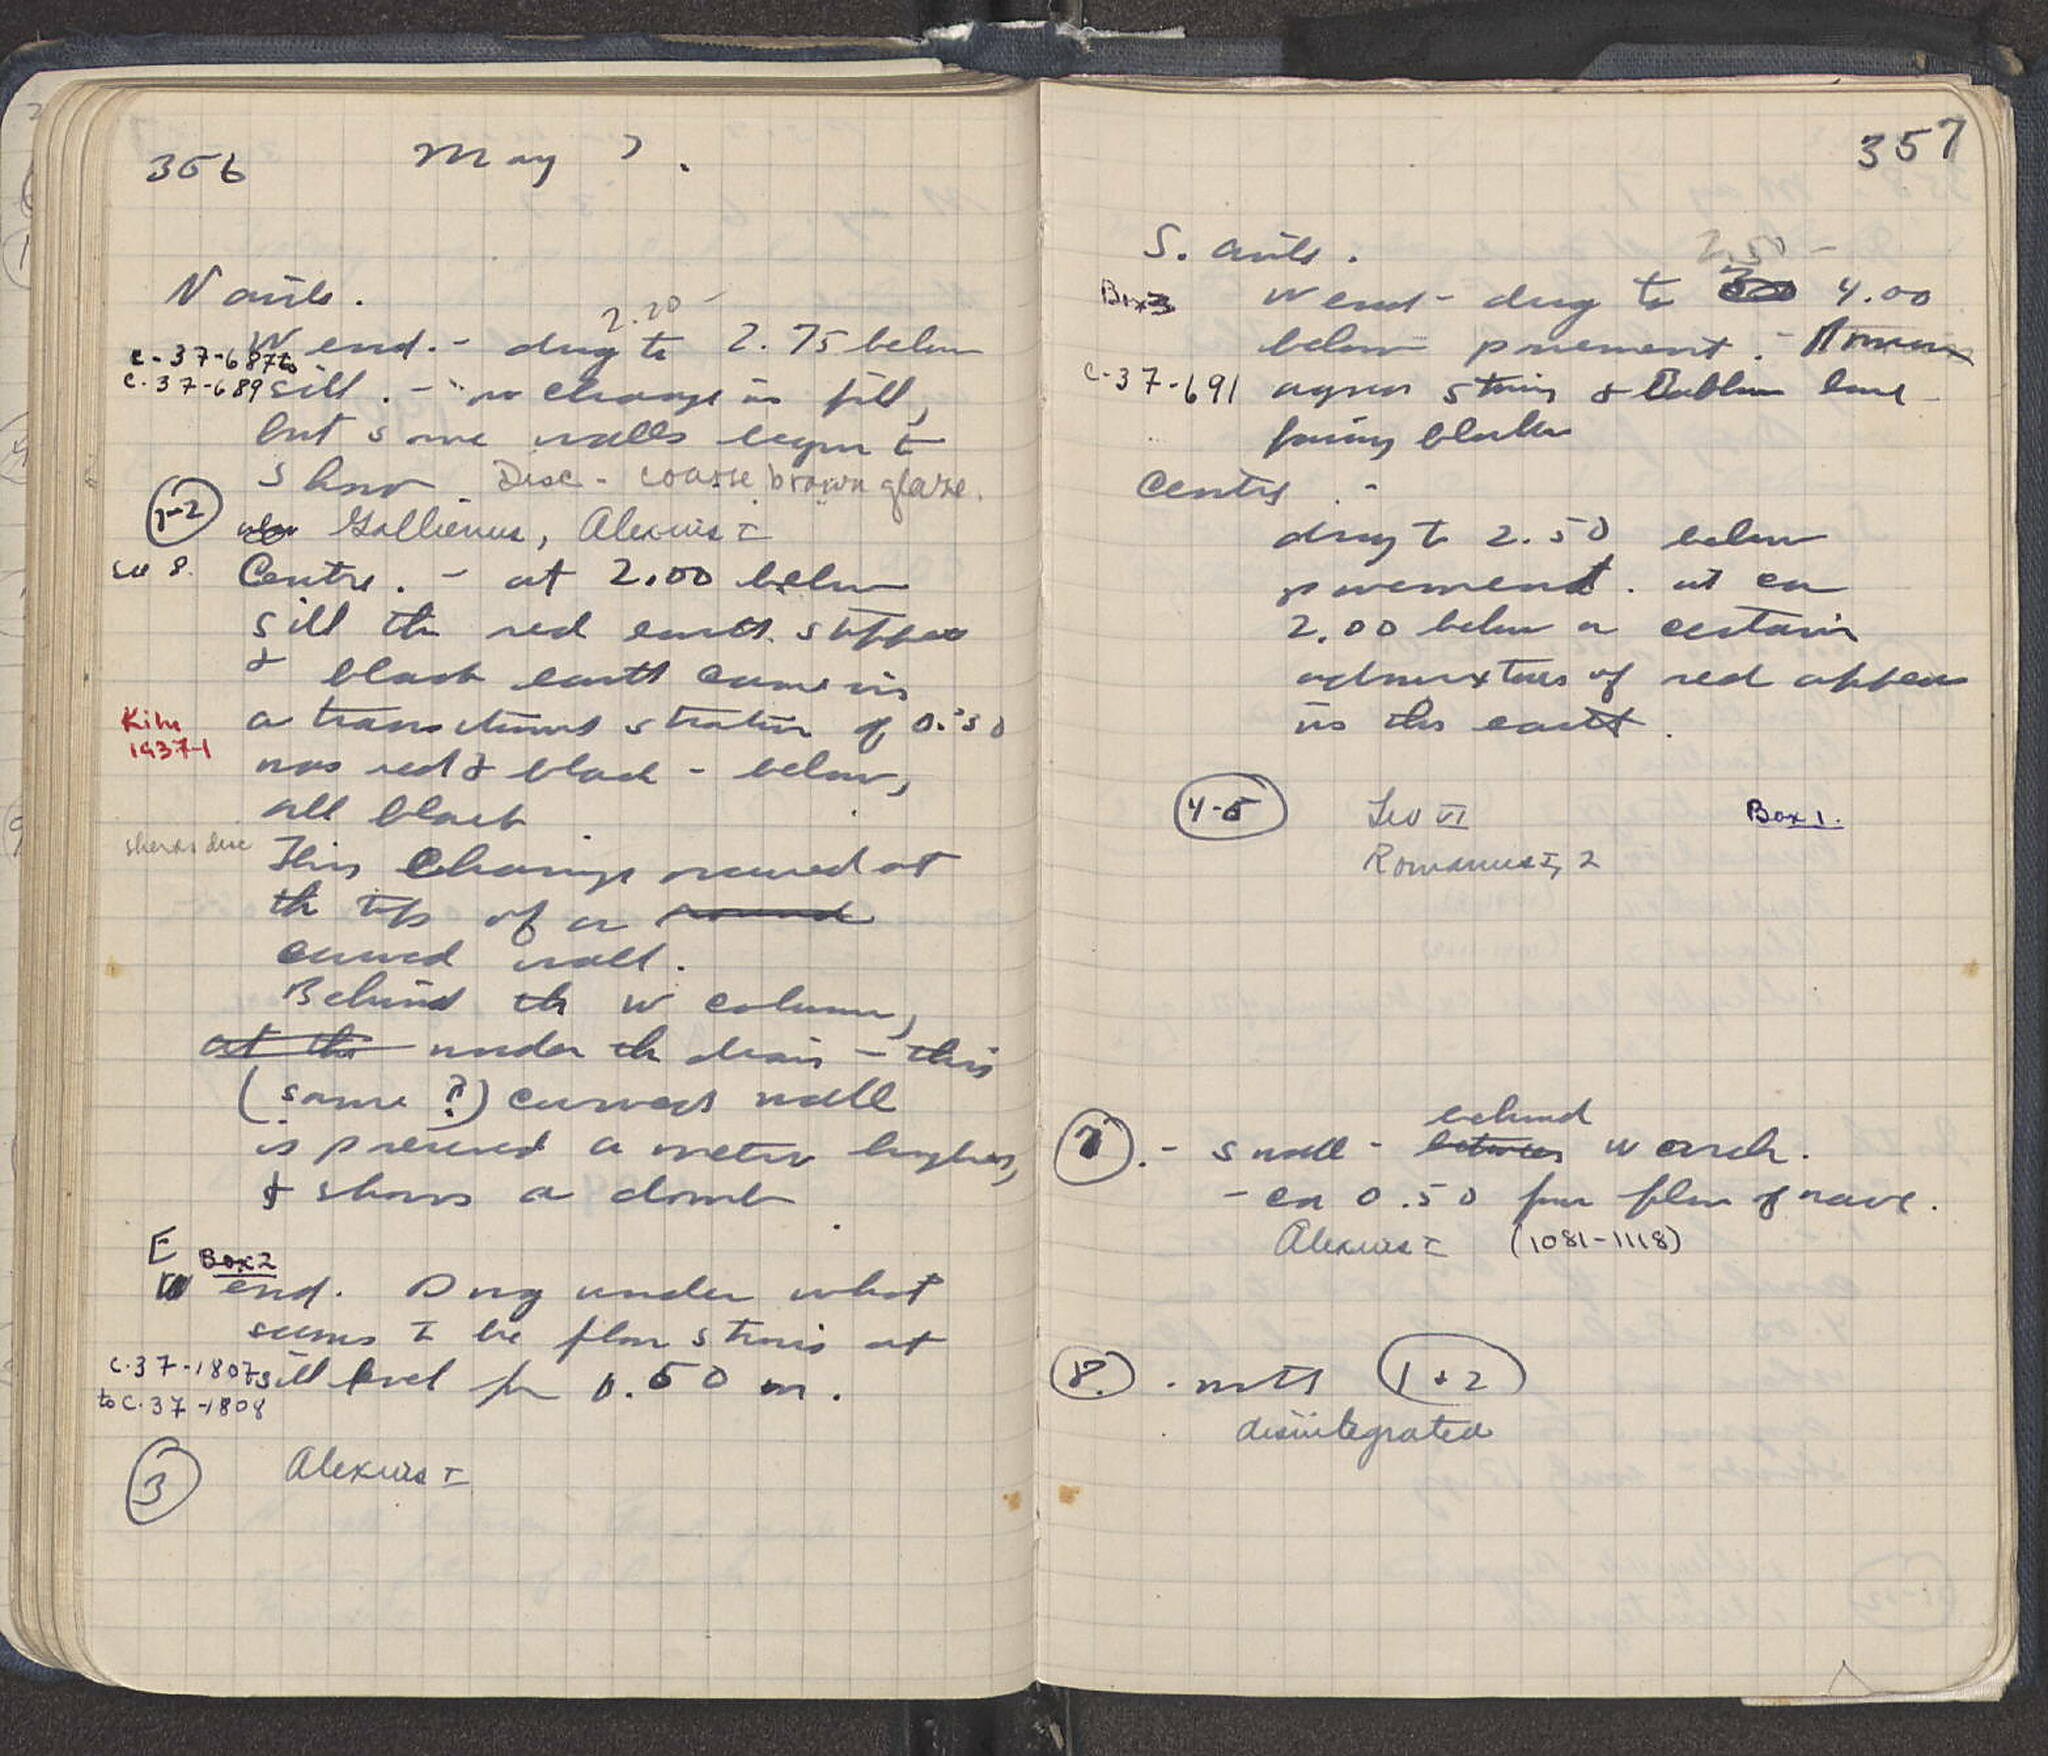 356
May 7.
N aisle.
2.20 -
W end. - dug to 2.75 below
C-37-687 to
C-37-689
sill. - no change in fill,
but some walls begin to
show. Disc - coarse brown glaze.
1-2
Gallienus, Alexius I
Centre. - at 2.00 below
sill the red earth stopped
& black earth came in
Kiln
1937-1
a transitional stratum of 0.30
was red & black - below,
all black.
sherds disc
This change occured at
the top of a round
curved wall.
Behind the W column,
at the under the drain - this
(same ?) curved wall
is preserved a meter higher,
& shows a dome
E
Box 2
W end. Dug under what
seems to be floor strosis at
C-37-1807
to C-37-1808
sill level for 0.50 m.
3
Alexius I
357
S. aisle.
2.50 -
Box 3
W end - dug to 4.00
below pavement. -
C-37-691
again
facing blocks
Centre. -
dug to 2.50 below
pavement. at ca
2.00 below a certain
admixture of red appears
in the earth.
4-5
Leo VI
Box 1.
Romanus I, 2
behind
7. - small - between W arch.
- ca 0.50 from floor of nave.
Alexius I (1081-1118)
8. - with 1 + 2
disintegrated